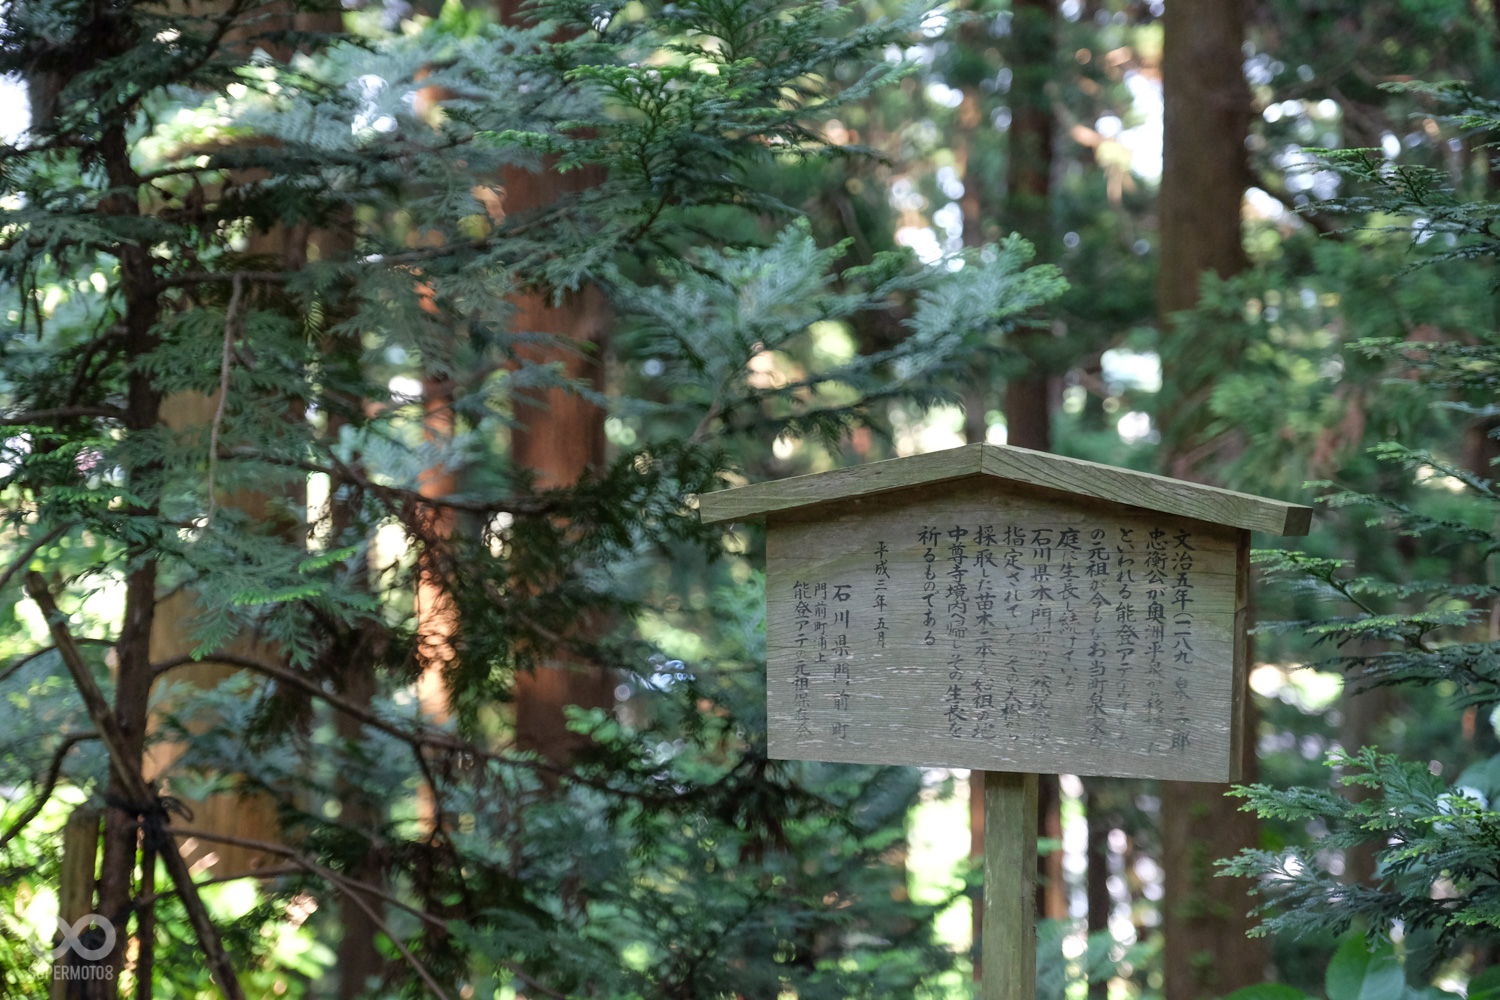 文治五年(一一八九 泉 三郎
忠衡公が奥洲平泉から移植した
といわれる能登アテ
の元祖が今もなお当町泉家の
庭に生長し続けている
石川県木
指定されている その大樹から
採取した苗木二本を始祖の地
中尊寺境内へ帰しその生長を
祈るものである
平成三年五月
石川県門前町
門前町浦上
能登アテの元祖保存会
SUPERMOTO8